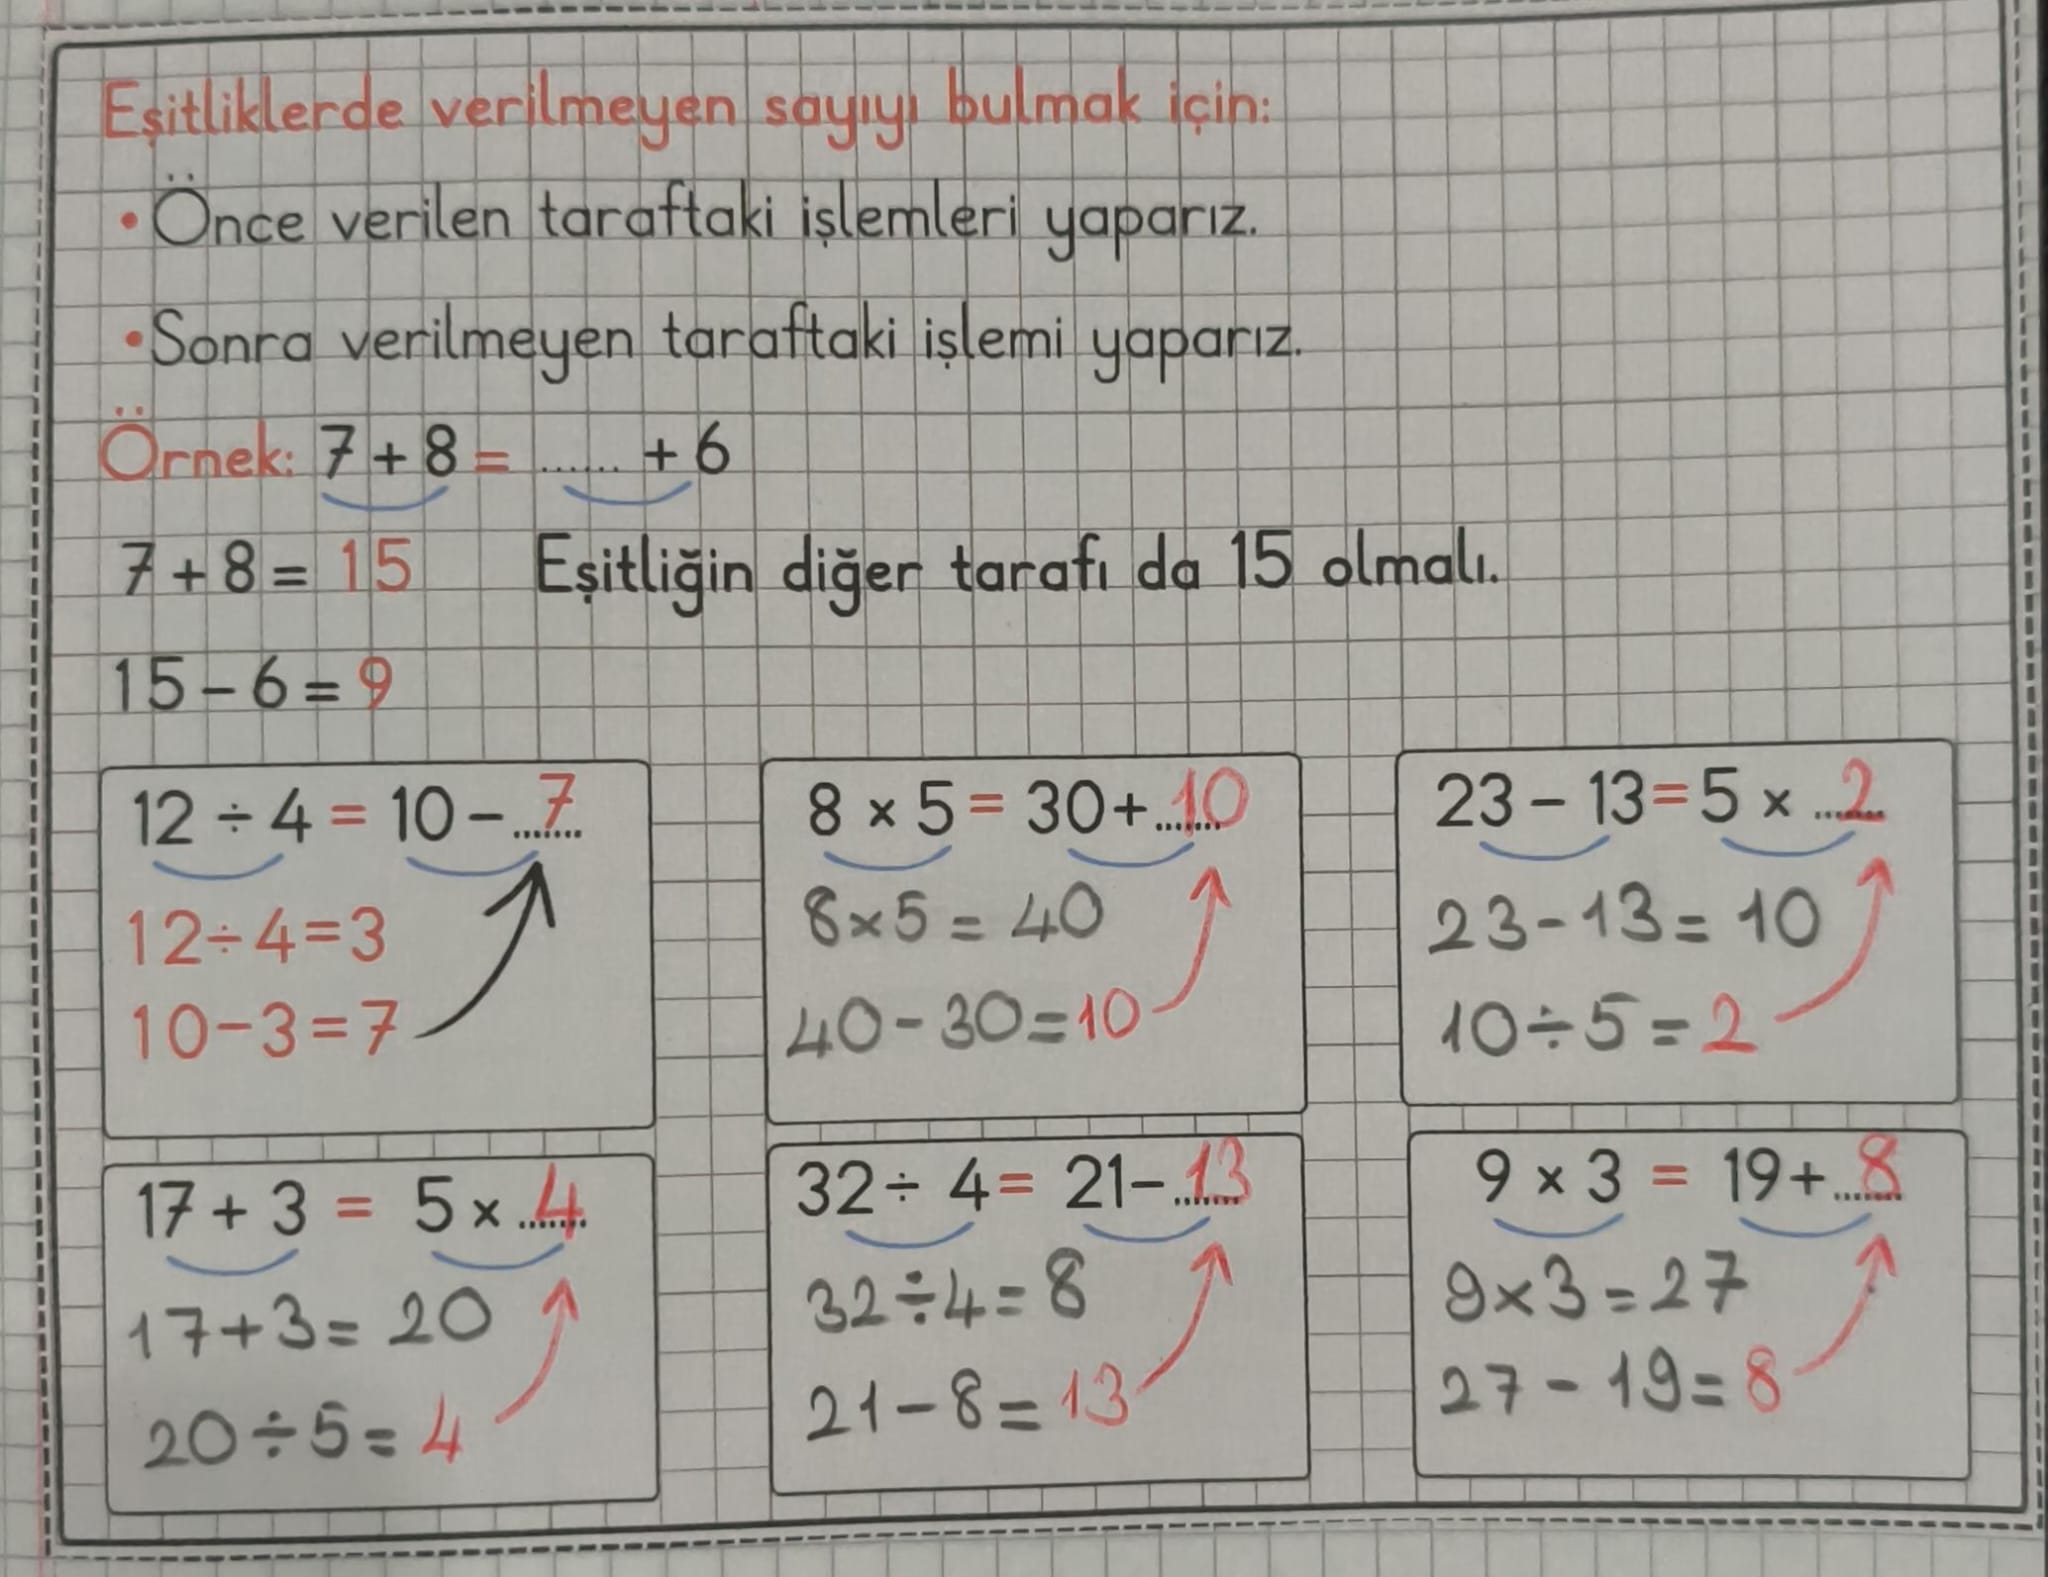 Eşitliklerde verilmeyen sayıyı bulmak için:
• Önce verilen taraftaki işlemleri yaparız.
• Sonra verilmeyen taraftaki işlemi yaparız.
Örnek: 7 + 8 = ...... + 6
7 + 8 = 15 Eşitliğin diğer tarafı da 15 olmalı.
15 - 6 = 9
12 ÷ 4 = 10 - 7
12 ÷ 4 = 3
10 - 3 = 7
8 × 5 = 30 + 10
8 × 5 = 40
40 - 30 = 10
23 - 13 = 5 × 2
23 - 13 = 10
10 ÷ 5 = 2
17 + 3 = 5 × 4
17 + 3 = 20
20 ÷ 5 = 4
32 ÷ 4 = 21 - 13
32 ÷ 4 = 8
21 - 8 = 13
9 × 3 = 19 + 8
9 × 3 = 27
27 - 19 = 8